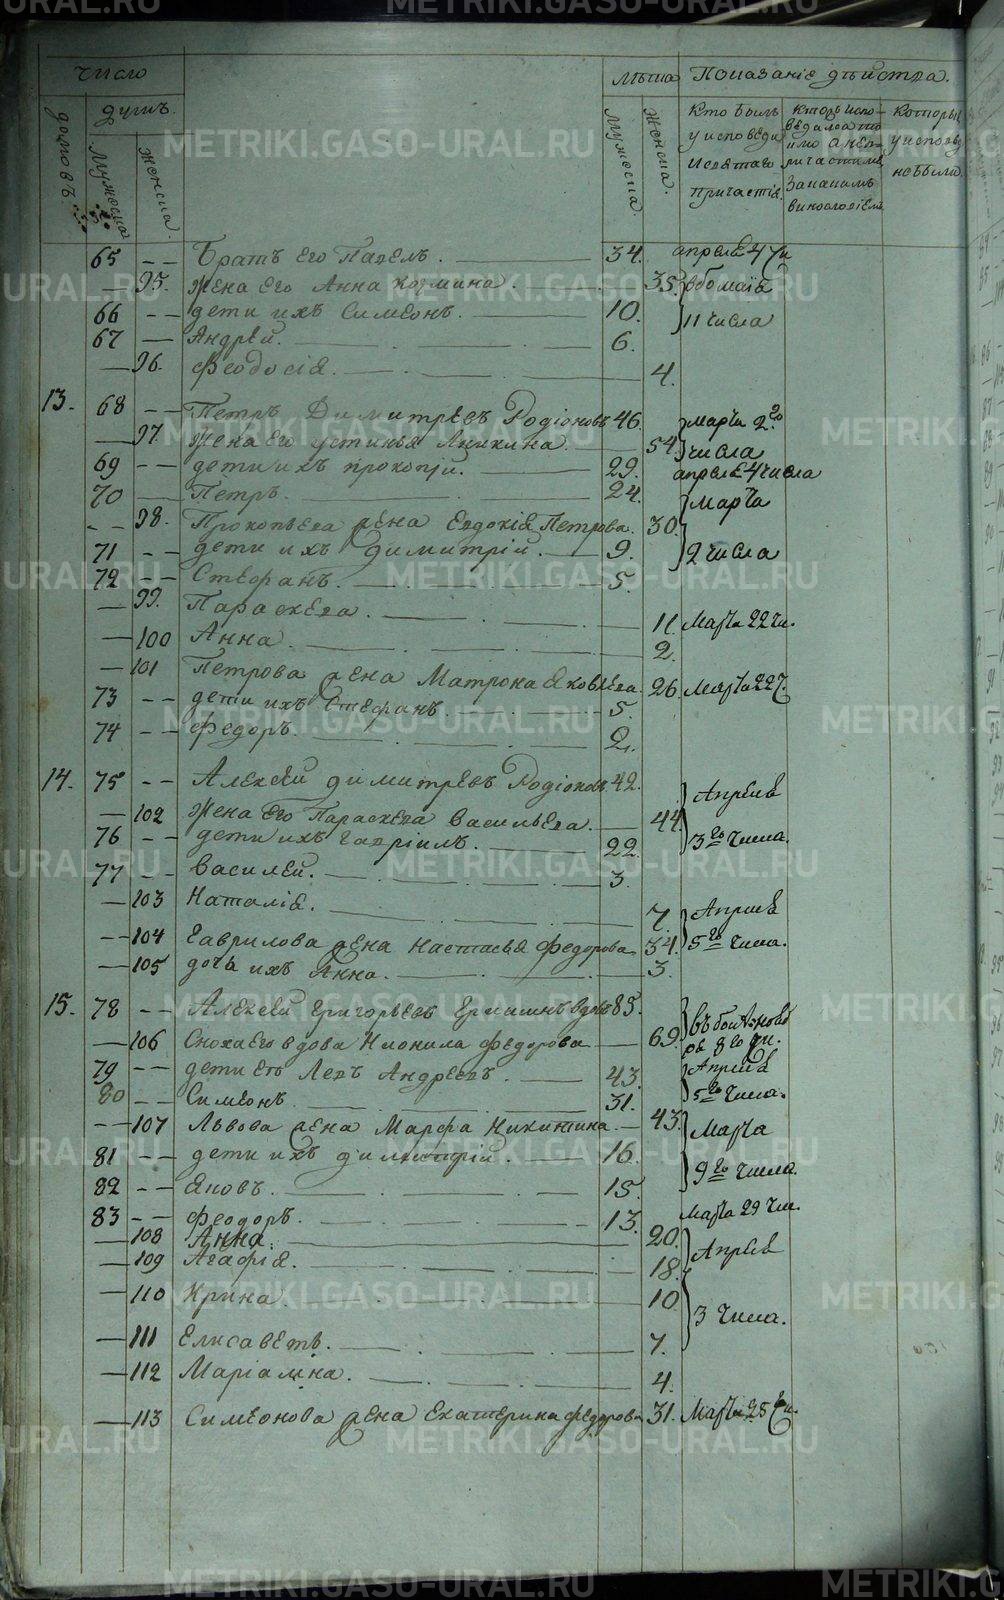 METRIKI.GASO-URAL.RU
Число
домовъ.
душъ.
Мужеска
женска.
Лѣта
Мужеска.
Женска.
Показаніе дѣйства.
Кто былъ
у исповеди
и святаго
причастія.
Которы испо-
ведался то
лмо а не
причастилс
За какимъ
винословіемъ
Которы
у исповѣ
не были.
65 -- Братъ его Павелъ. 34. апреля 4 чи
— 95. жена его Анна козмина. 35.
66 -- дети ихъ Симеонъ. 10. 11 числа
67 — Андрей. 6.
— 96. Феодосія. 4.
13. 68 -- Петръ Димитревъ Родіоновъ 46. марта 2го
— 97. жена его устинья Аникина 54. числа
69 -- дети ихъ прокопій. 29. апреля 4 числа
70 — Петръ. 24. марта
-- 98. Прокопьева жена Евдокія Петрова. 30.
71 -- дети ихъ димитрій. 9. 2 числа
72 -- Стефанъ. 5.
— 99. Параскева. 11. Марта 22 чи.
— 100 Анна. 2.
— 101 Петрова жена Матрона Яковлева. 26 Марта 22 ч.
73 -- дети ихъ Стефанъ. 5.
74 -- Федоръ. 2.
14. 75 -- Алексей димитревъ Родіоновъ. 42. Апреля
— 102 жена его Параскева Васильева. 44.
76 -- дети ихъ Гавріилъ. 22. 3го числа.
77 -- Василей. 3.
— 103 Наталія. 7. Апреля
-- 104 Гаврилова жена Настасья Федорова 34. 5го числа.
— 105 дочь ихъ Анна. 3.
15. 78 -- Алексей Григорьевъ Ермишнъ вдовъ 85.
— 106 Сноха его вдова Нионила Федорова 69.
79 -- дети её Левъ Андреевъ. 43. Апреля
80 -- Симеонъ. 31. 5го числа.
-- 107 Львова жена Марфа Никитина. 43. Марта
81 -- дети ихъ димитрій. 16. 9го числа.
82 -- Яковъ. 15.
83 -- Феодоръ. 13. марта 29 чи.
— 108 Анна. 20. Апреля
— 109 Агафія. 18.
— 110 Ирина. 10 3 числа.
— 111 Елисаветъ. 7.
— 112 Маріамна. 4.
— 113 Симеонова жена Екатерина федорова 31. Марта 25 чи.